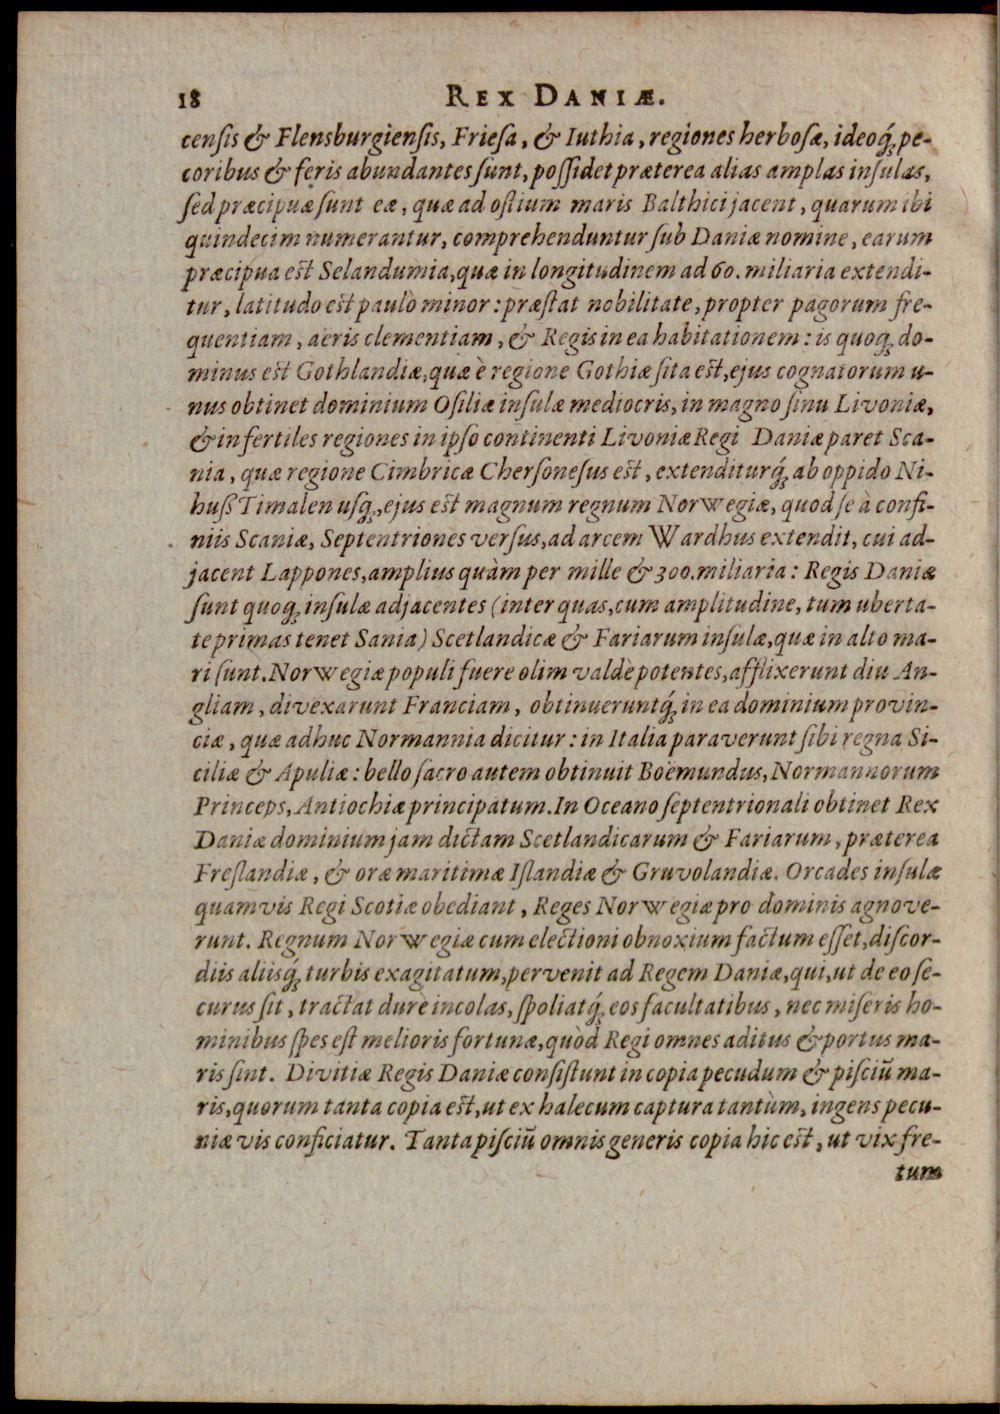 18 REX DANIÆ.
cenſis & Flensburgienſis, Frieſa, & Iuthia, regiones herboſæ, ideoq́; pe-
coribus & feris abundantes ſunt, poſſidet præterea alias amplas inſulas,
ſed præcipuæ ſunt eæ, quæ ad oſtium maris Balthici jacent, quarum ibi
quindecim numerantur, comprehenduntur ſub Daniæ nomine, earum
præcipua est Selandumia, quæ in longitudinem ad 60. miliaria extendi-
tur, latitudo est paulò minor: præſtat nobilitate, propter pagorum fre-
quentiam, aëris clementiam, & Regis in ea habitationem: is quoq; do-
minus est Gothlandiæ, quæ è regione Gothiæ ſita est, ejus cognatorum u-
nus obtinet dominium Oſiliæ inſulæ mediocris, in magno ſinu Livoniæ,
& in fertiles regiones in ipſo continenti Livoniæ Regi Daniæ paret Sca-
nia, quæ regione Cimbricæ Cherſoneſus est, extenditurq́; ab oppido Ni-
huſs Timalen uſq;, ejus est magnum regnum Norwegiæ, quod ſe à confi-
niis Scaniæ, Septentriones verſus, ad arcem Wardhus extendit, cui ad-
jacent Lappones, amplius quàm per mille & 300. miliaria: Regis Daniæ
ſunt quoq; inſulæ adjacentes (inter quas, cum amplitudine, tum uberta-
te primas tenet Sania) Scetlandicæ & Fariarum inſulæ, quæ in alto ma-
ri ſunt. Norwegiæ populi fuere olim valdè potentes, afflixerunt diu An-
gliam, divexarunt Franciam, obtinueruntq́; in ea dominium provin-
ciæ, quæ adhuc Normannia dicitur: in Italia paraverunt ſibi regna Si-
ciliæ & Apuliæ: bello ſacro autem obtinuit Boëmundus, Normannorum
Princeps, Antiochiæ principatum. In Oceano ſeptentrionali obtinet Rex
Daniæ dominium jam dictam Scetlandicarum & Fariarum, præterea
Freſlandiæ, & oræ maritimæ Iſlandiæ & Gruvolandiæ. Orcades inſulæ
quamvis Regi Scotiæ obediant, Reges Norwegiæ pro dominis agnove-
runt. Regnum Norwegiæ cum electioni obnoxium factum eſſet, diſcor-
diis aliisq́; turbis exagitatum, pervenit ad Regem Daniæ, qui, ut de eo ſe-
curus ſit, tractat durè incolas, ſpoliatq́; eos facultatibus, nec miſeris ho-
minibus ſpes eſt melioris fortunæ, quòd Regi omnes aditus & portus ma-
ris ſint. Divitiæ Regis Daniæ conſiſtunt in copia pecudum & piſciũ ma-
ris, quorum tanta copia est, ut ex halecum captura tantùm, ingens pecu-
niæ vis conficiatur. Tanta piſciũ omnis generis copia hic est, ut vix fre-
tum